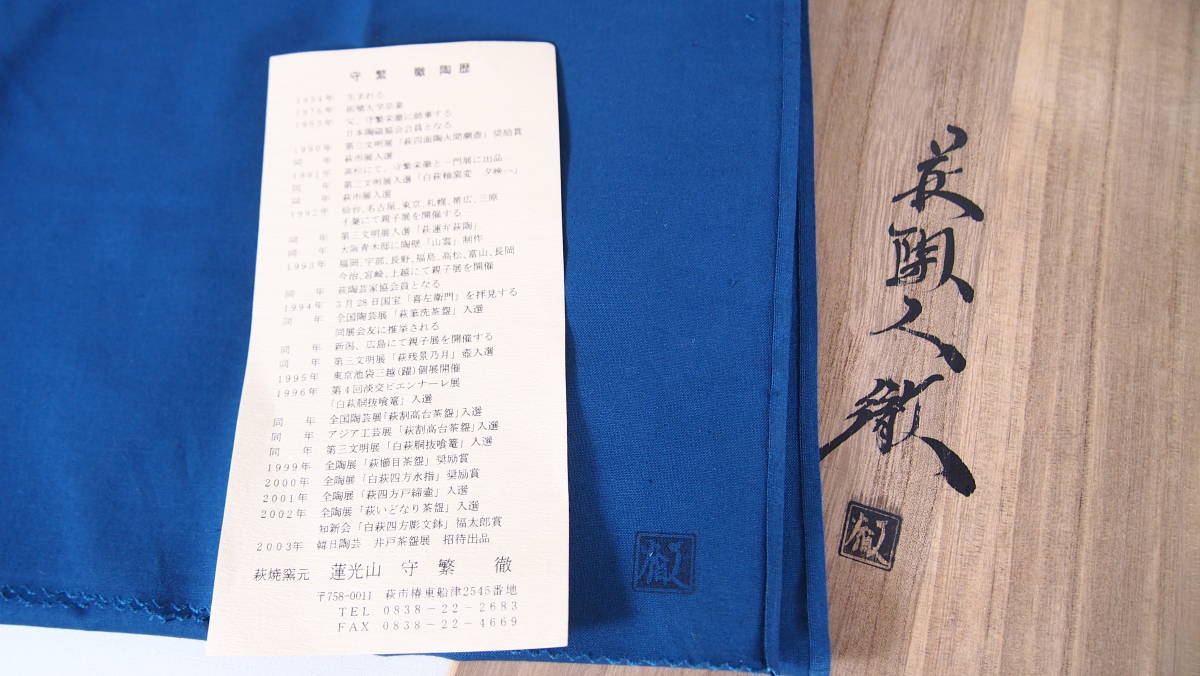 守繁　徹　陶歴
1954年　生まれる
1976年　拓殖大学卒業
1985年　父、守繁栄徹に師事する
日本陶磁協会会員となる
1990年　第三文明展「萩四面陶火間欄壺」奨励賞
同　年　萩市展入選
1991年　高松にて、守繁栄徹と一門展に出品
同　年　第三文明展入選「白萩釉窯変　夕映一」
同　年　萩市展入選
1992年　仙台、名古屋、東京、札幌、帯広、三原
千葉にて親子展を開催する
同　年　第三文明展入選「萩蓮弁萩陶」
同　年　大阪青木邸に陶壁「山雲」制作
1993年　福岡、宇部、長野、福島、高松、富山、長岡
今治、宮崎、上越にて親子展を開催
同　年　萩陶芸家協会員となる
1994年　3月28日国宝「喜左衛門」を拝見する
同　年　全国陶芸展「萩筆洗茶盌」入選
同展会友に推挙される
同　年　新潟、広島にて親子展を開催する
同　年　第三文明展「萩残景乃月」壺入選
1995年　東京池袋三越(躍)個展開催
1996年　第4回淡交ビエンナーレ展
「白萩胴抜喰籠」入選
同　年　全国陶芸展「萩割高台茶盌」入選
同　年　アジア工芸展「萩割高台茶盌」入選
同　年　第三文明展「白萩胴抜喰籠」入選
1999年　全陶展「萩櫛目茶盌」奨励賞
2000年　全陶展「白萩四方水指」奨励賞
2001年　全陶展「萩四方戸締壷」入選
2002年　全陶展「萩いどなり茶盌」入選
知新会「白萩四方彫文鉢」福太郎賞
2003年　韓日陶芸　井戸茶盌展　招待出品
萩焼窯元　蓮光山　守　繁　徹
〒758-0011　萩市椿東船津2545番地
TEL　0838－22－2683
FAX　0838－22－4669
徹
萩陶人徹
徹